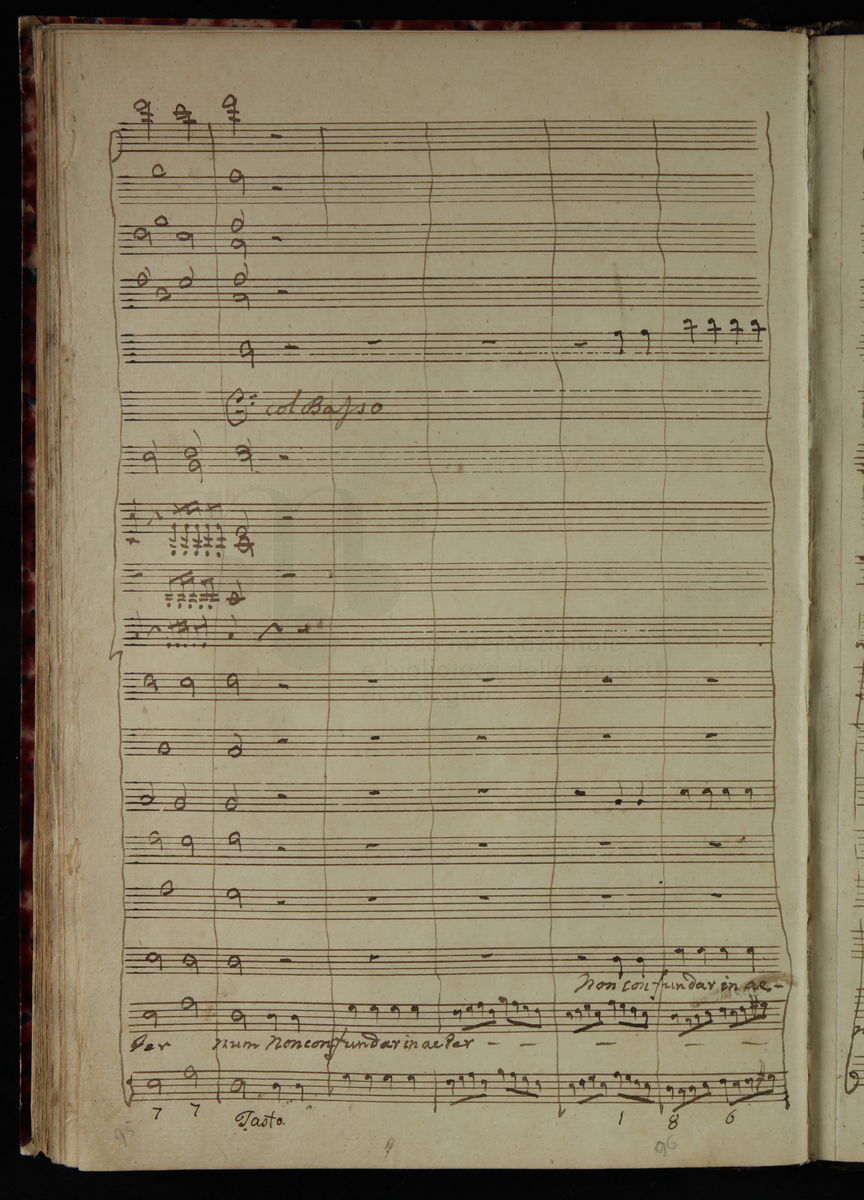 col Basso
Non con fundar in ae-
ter num Non con fundar in aeter - - - - -
7 7 Tasto 1 8 6
95 96